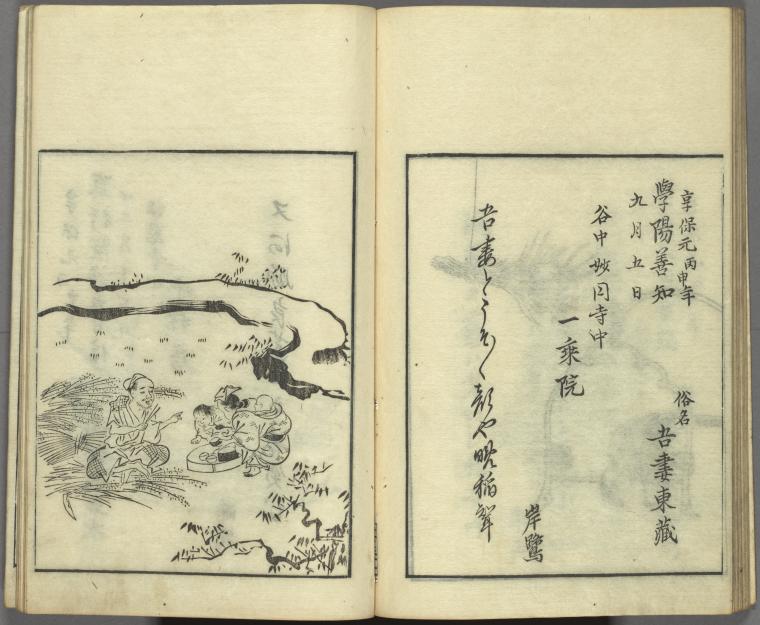 享保元丙申年
學陽善知
九月五日
俗名
吾妻東藏
谷中妙円寺中
一乘院
岸鷺
吾妻と や晩稲